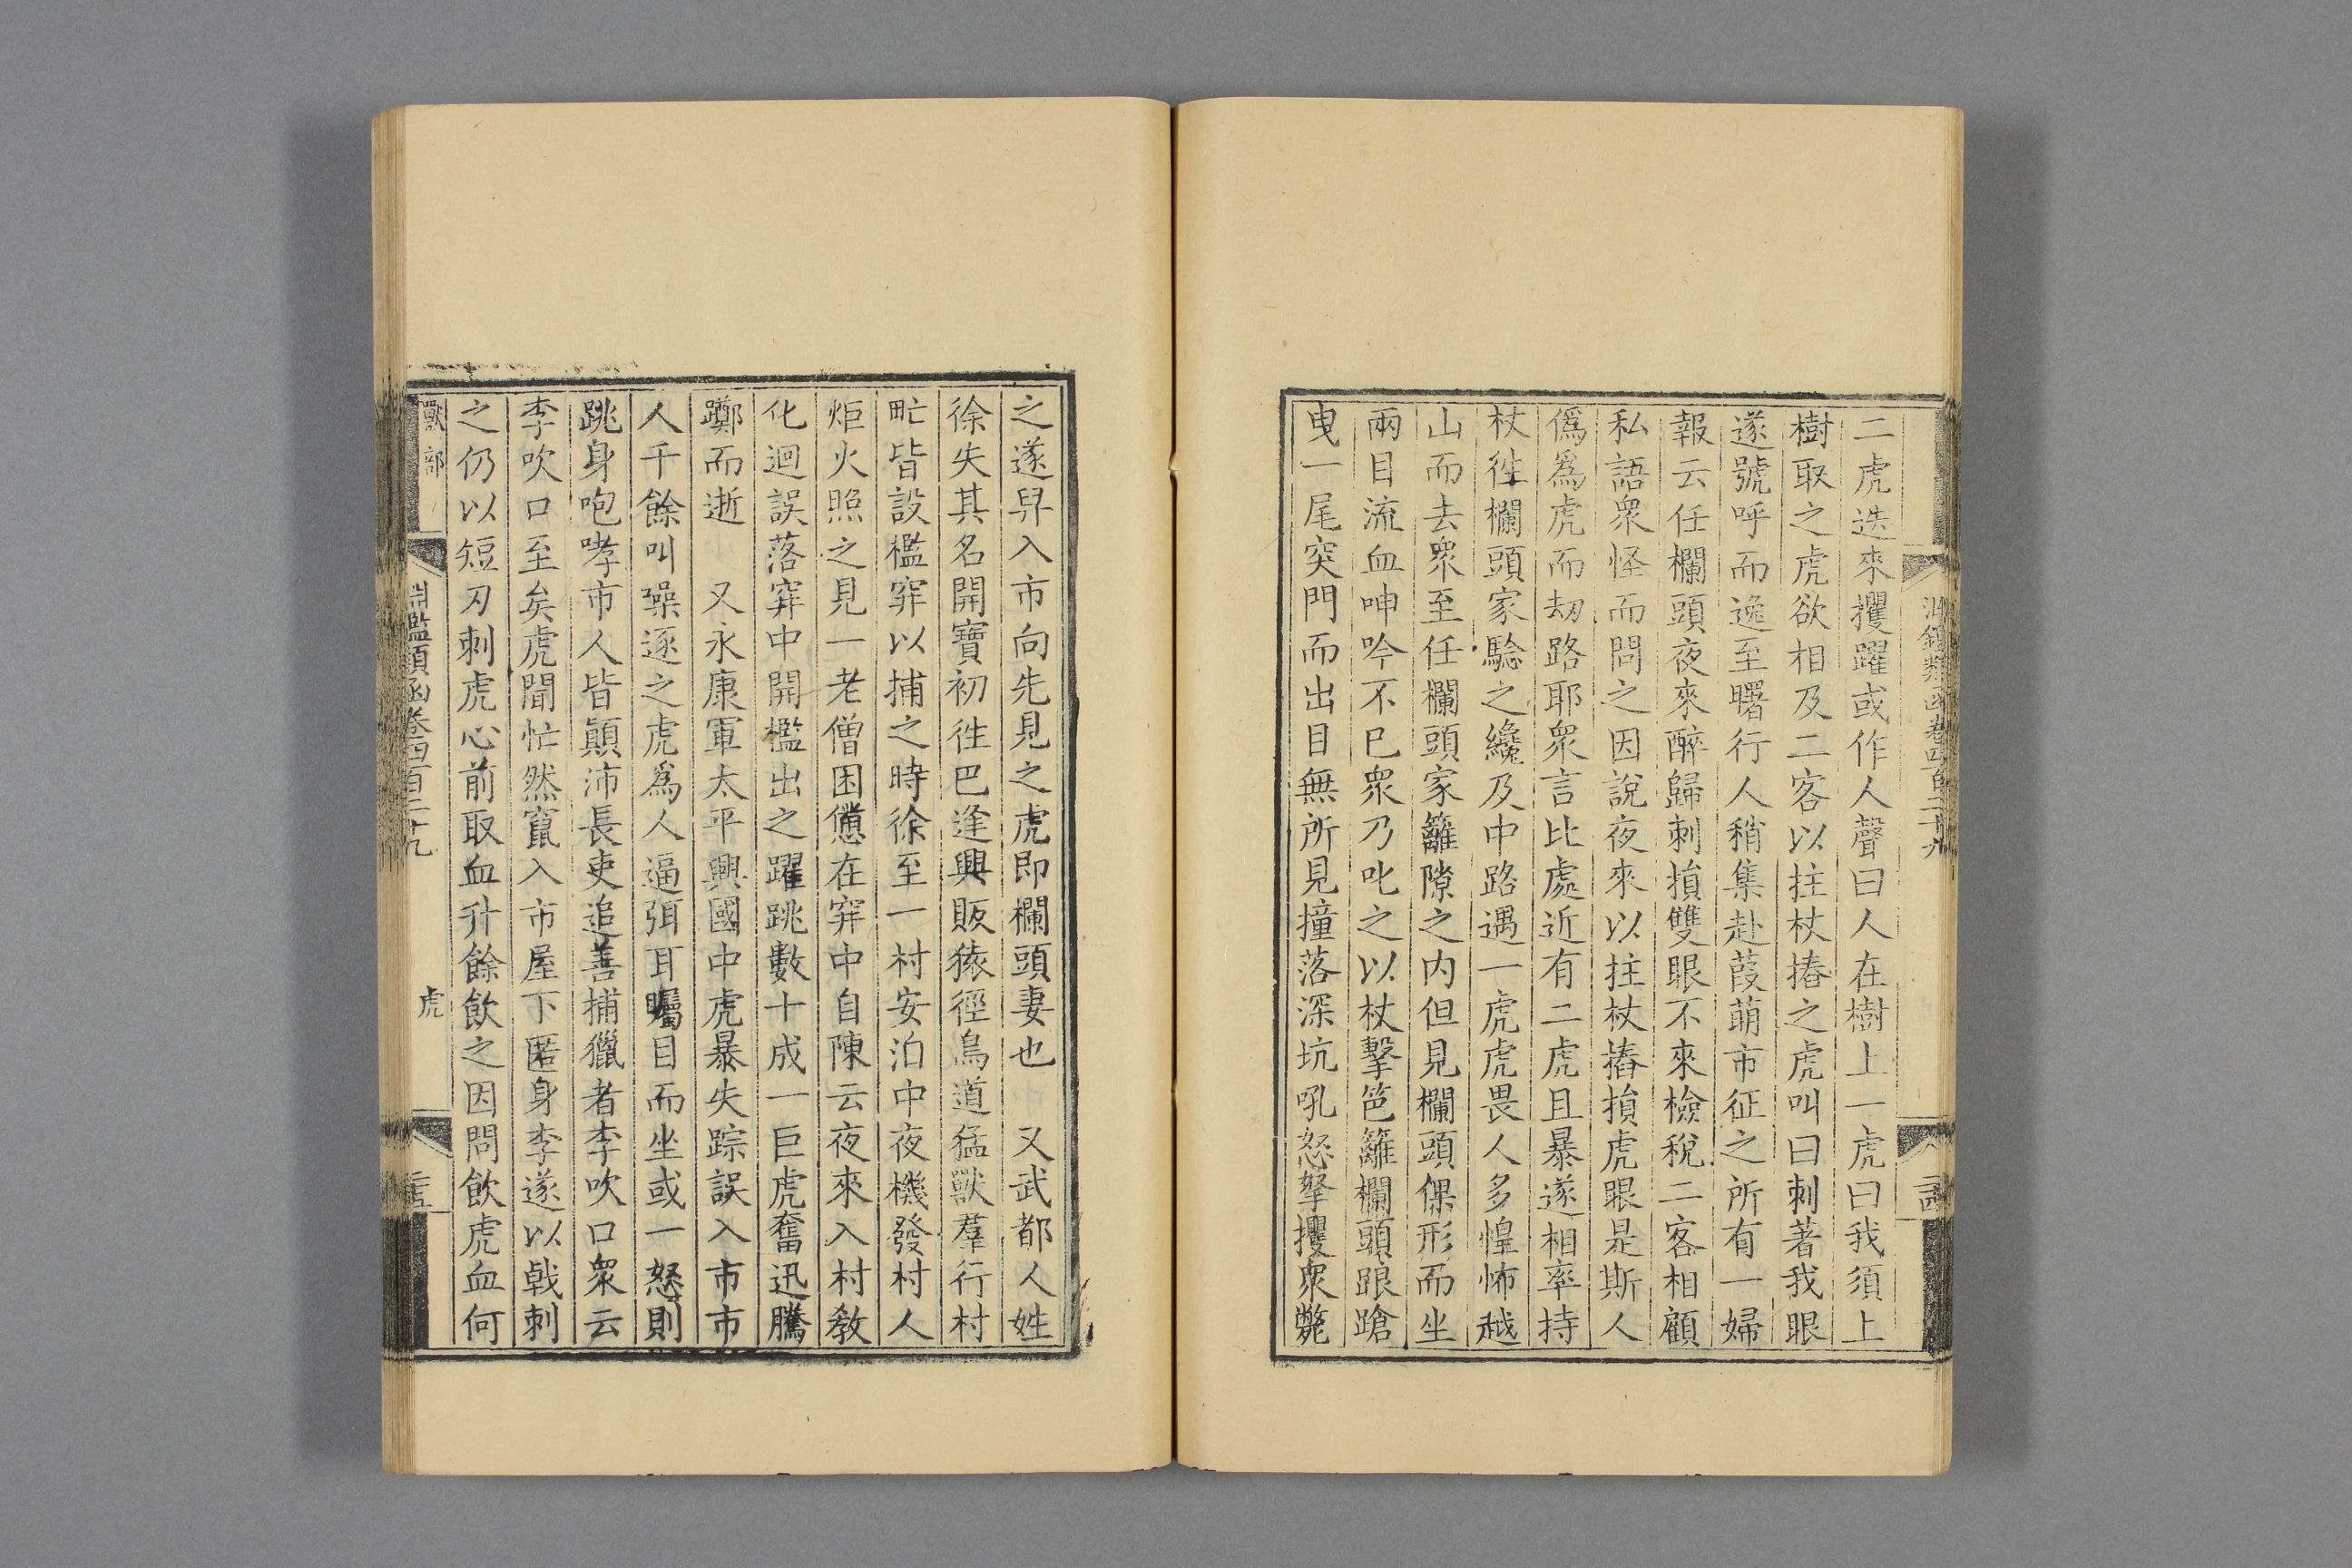 淵鑑類函卷四百二十九
二虎迭來攫躍或作人聲曰人在樹上一虎曰我須上
樹取之虎欲相及二客以拄杖摏之虎叫曰刺著我眼
遂號呼而逸至曙行人稍集赴葭萌市征之所有一婦
報云任欄頭夜來醉歸刺損雙眼不來檢稅二客相顧
私語衆怪而問之因說夜來以拄杖摏損虎眼是斯人
僞爲虎而刼路耶衆言比處近有二虎且暴遂相率持
杖徃欄頭家騐之纔及中路遇一虎虎畏人多惶怖越
山而去衆至任欄頭家籬隙之内但見欄頭倮形而坐
兩目流血呻吟不已衆乃叱之以杖擊笆籬欄頭踉蹌
曳一尾突門而出目無所見撞落深坑吼怒拏攫衆斃
之遂舁入市向先見之虎即欄頭妻也　又武都人姓
徐失其名開寶初徃巴逢興販猿徑鳥道猛獸羣行村
甿皆設檻穽以捕之時徐至一村安泊中夜機發村人
炬火照之見一老僧困憊在穽中自陳云夜來入村敎
化迴誤落穽中開檻出之躍跳數十成一巨虎奮迅騰
躑而逝　又永康軍太平興國中虎暴失踪誤入市市
人千餘叫噪逐之虎爲人逼弭耳矚目而坐或一怒則
跳身咆哮市人皆顚沛長吏追善捕獵者李吹口衆云
李吹口至矣虎聞忙然竄入市屋下匿身李遂以戟刺
之仍以短刃刺虎心前取血升餘飲之因問飲虎血何
獸部
淵鑑類函卷四百二十九
虎